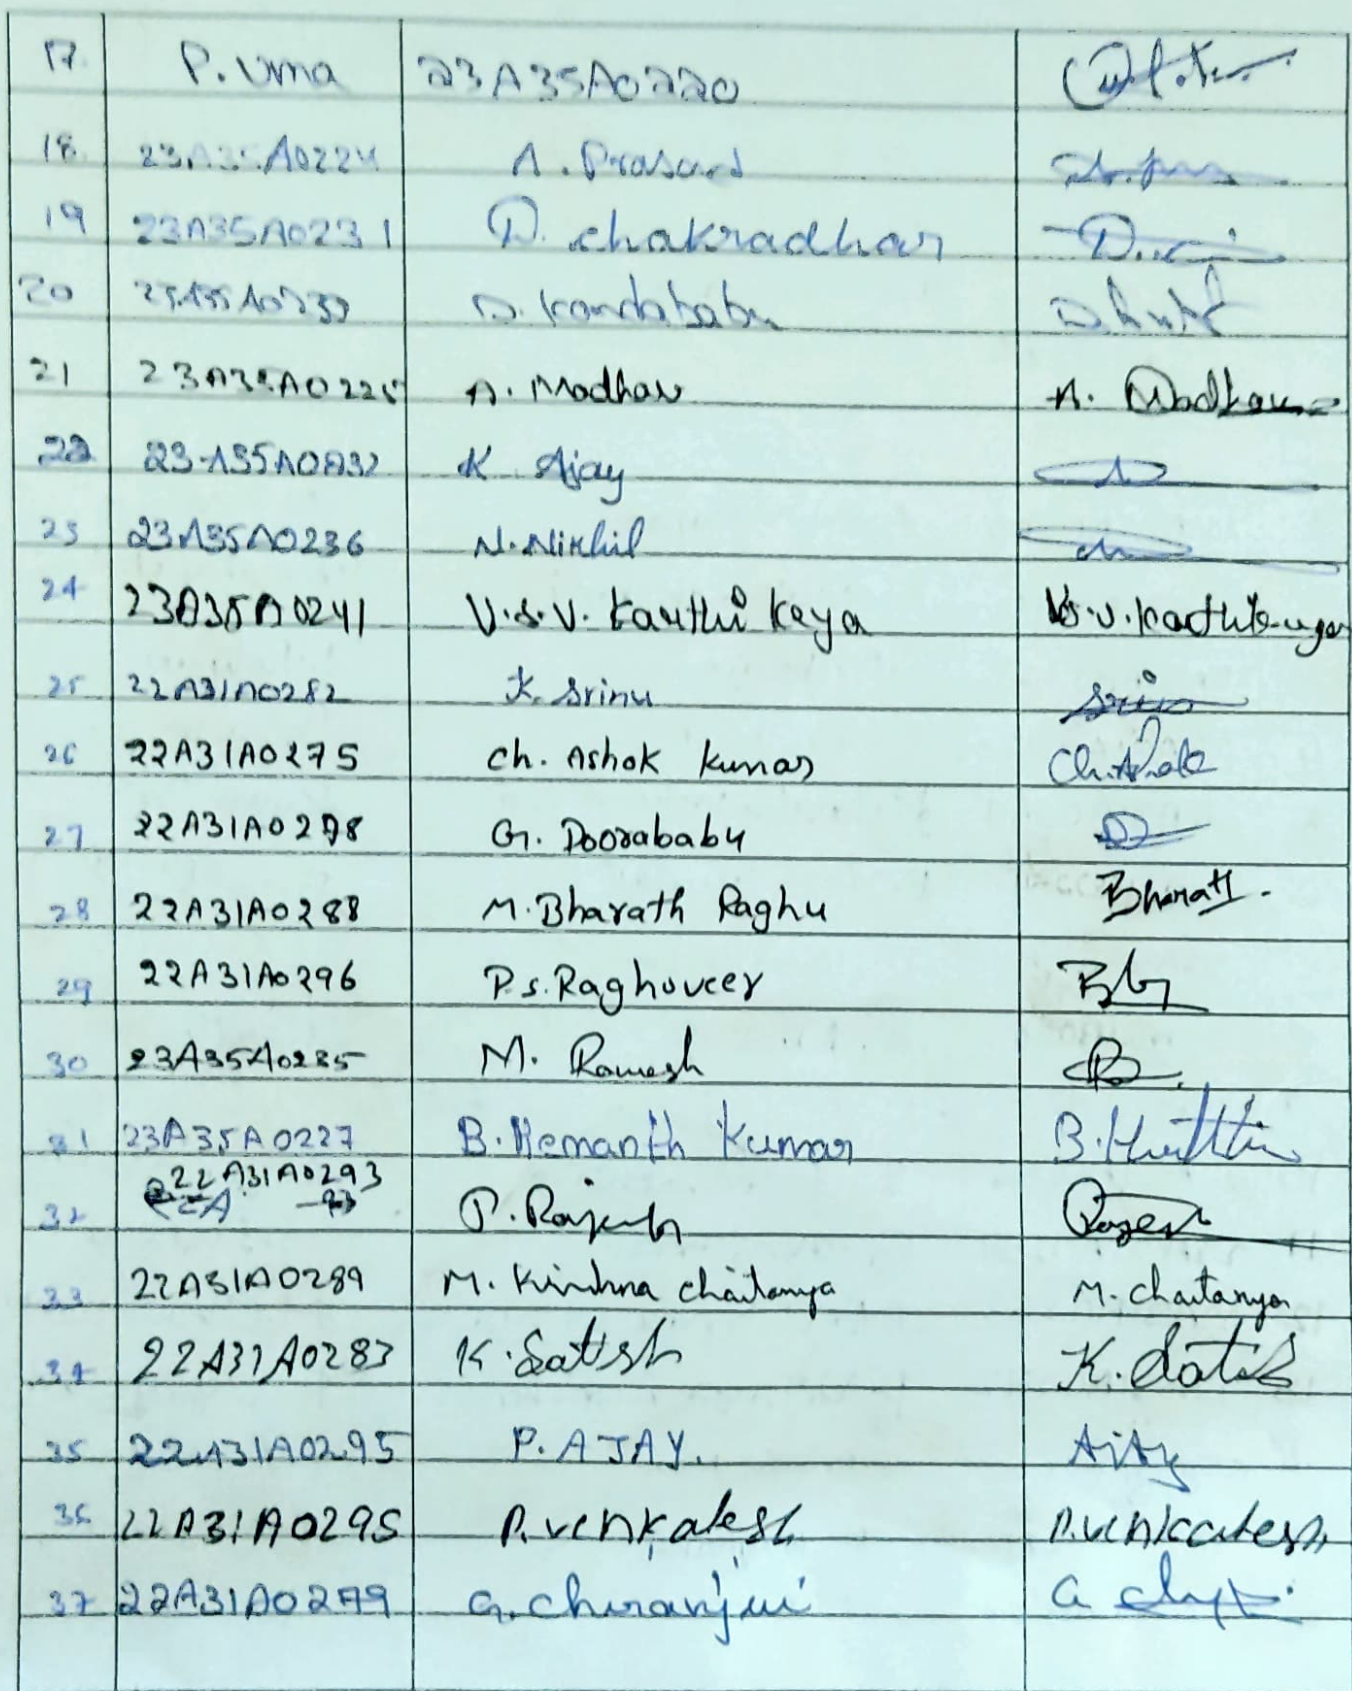 17. P. Uma 23A35A0220
18. 23A35A0224 A. Prasad
19 23A35A0231 D. chakradhar D.
20 D. Kondababu
21 23A35A0225 A. Madhav A. Madhav
22 23A35A0232 K Ajay
23 23A35A0236 N. Nikhil
24 23A35A0241 V.S.V. Karthi Keya V.S.V. Karthikeya
25 22A31A0282 K. Srinu Srinu
26 22A31A0275 Ch. Ashok Kumar Ch. Ashok
27 22A31A0278 G. Doorababu
28 22A31A0288 M. Bharath Raghu Bharath.
29 22A31A0296 P.S. Raghuveer
30 23A35A0235 M. Ramesh
31 23A35A0227 B. Hemanth Kumar
22A31A0293
32 P. Rajesh Rajesh
33 22A31A0289 M. Krishna Chaitanya M. Chaitanya
34 22A31A0283 K. Satish K. Satish
35 22A31A0295 P. AJAY. Ajay
36 22A31A0295 P. Venkatesh P. Venkatesh
37 22A31A0279 G. Chiranjivi G